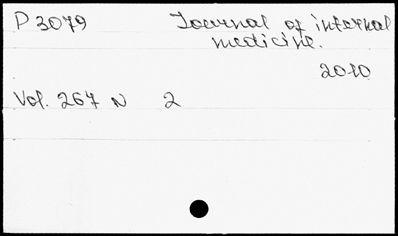 P 3079 Journal of internal
medicine.
2010
Vol. 267 N 2